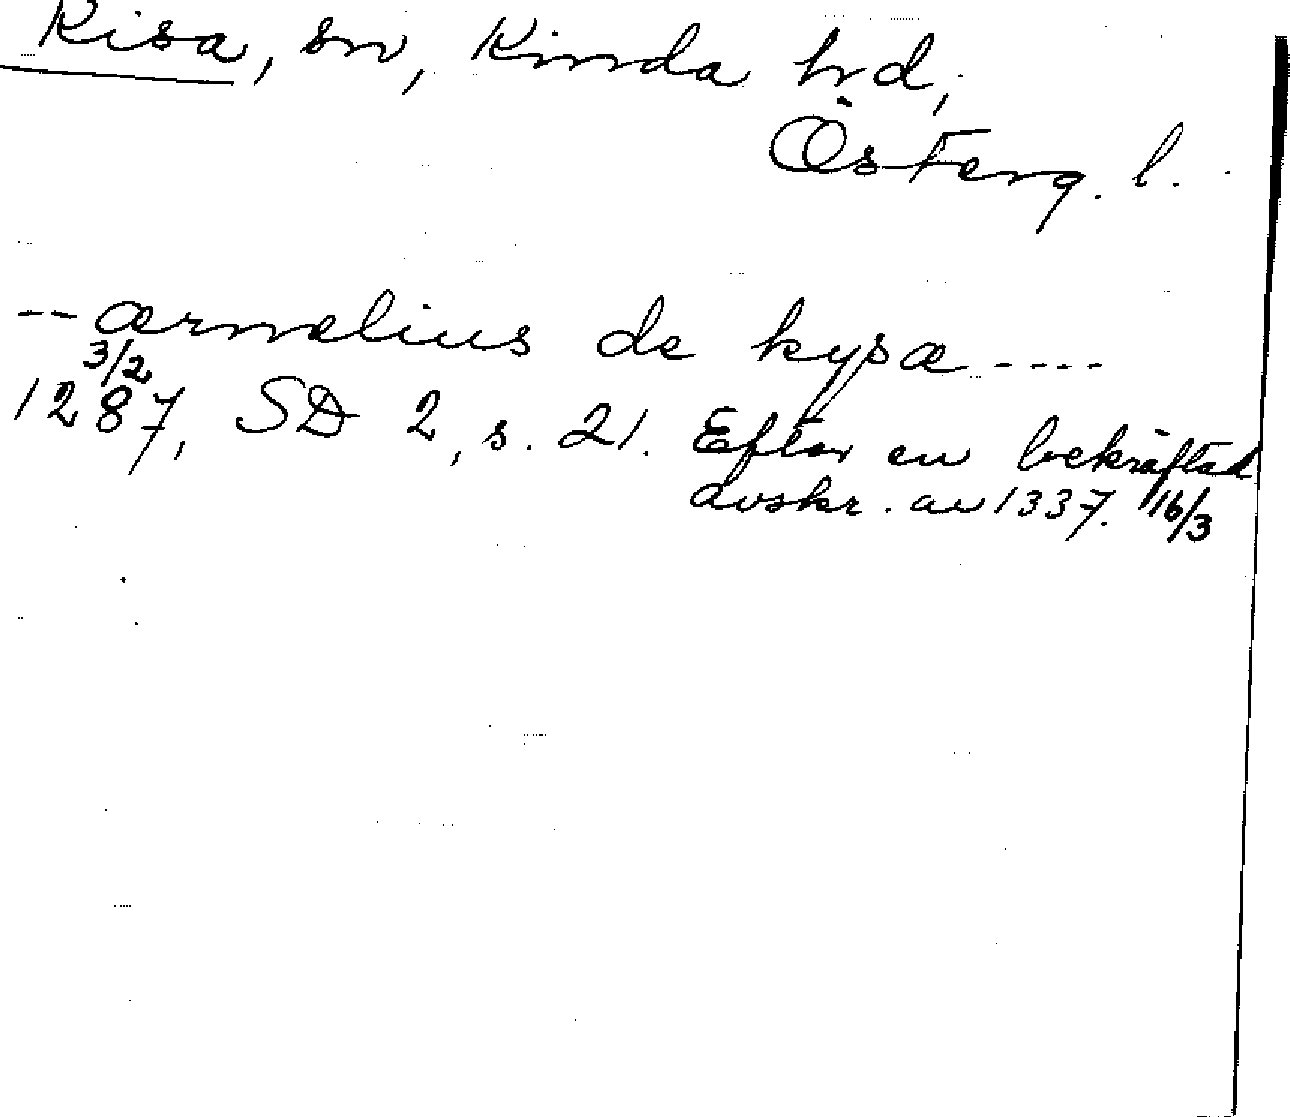 Kisa, sn, Kinda hrd,
Österg. l.
-- ærnælius de kysæ ----
3/2
1287, SD 2, s. 21. Efter en bekräftad
avskr. av 1337. 16/3